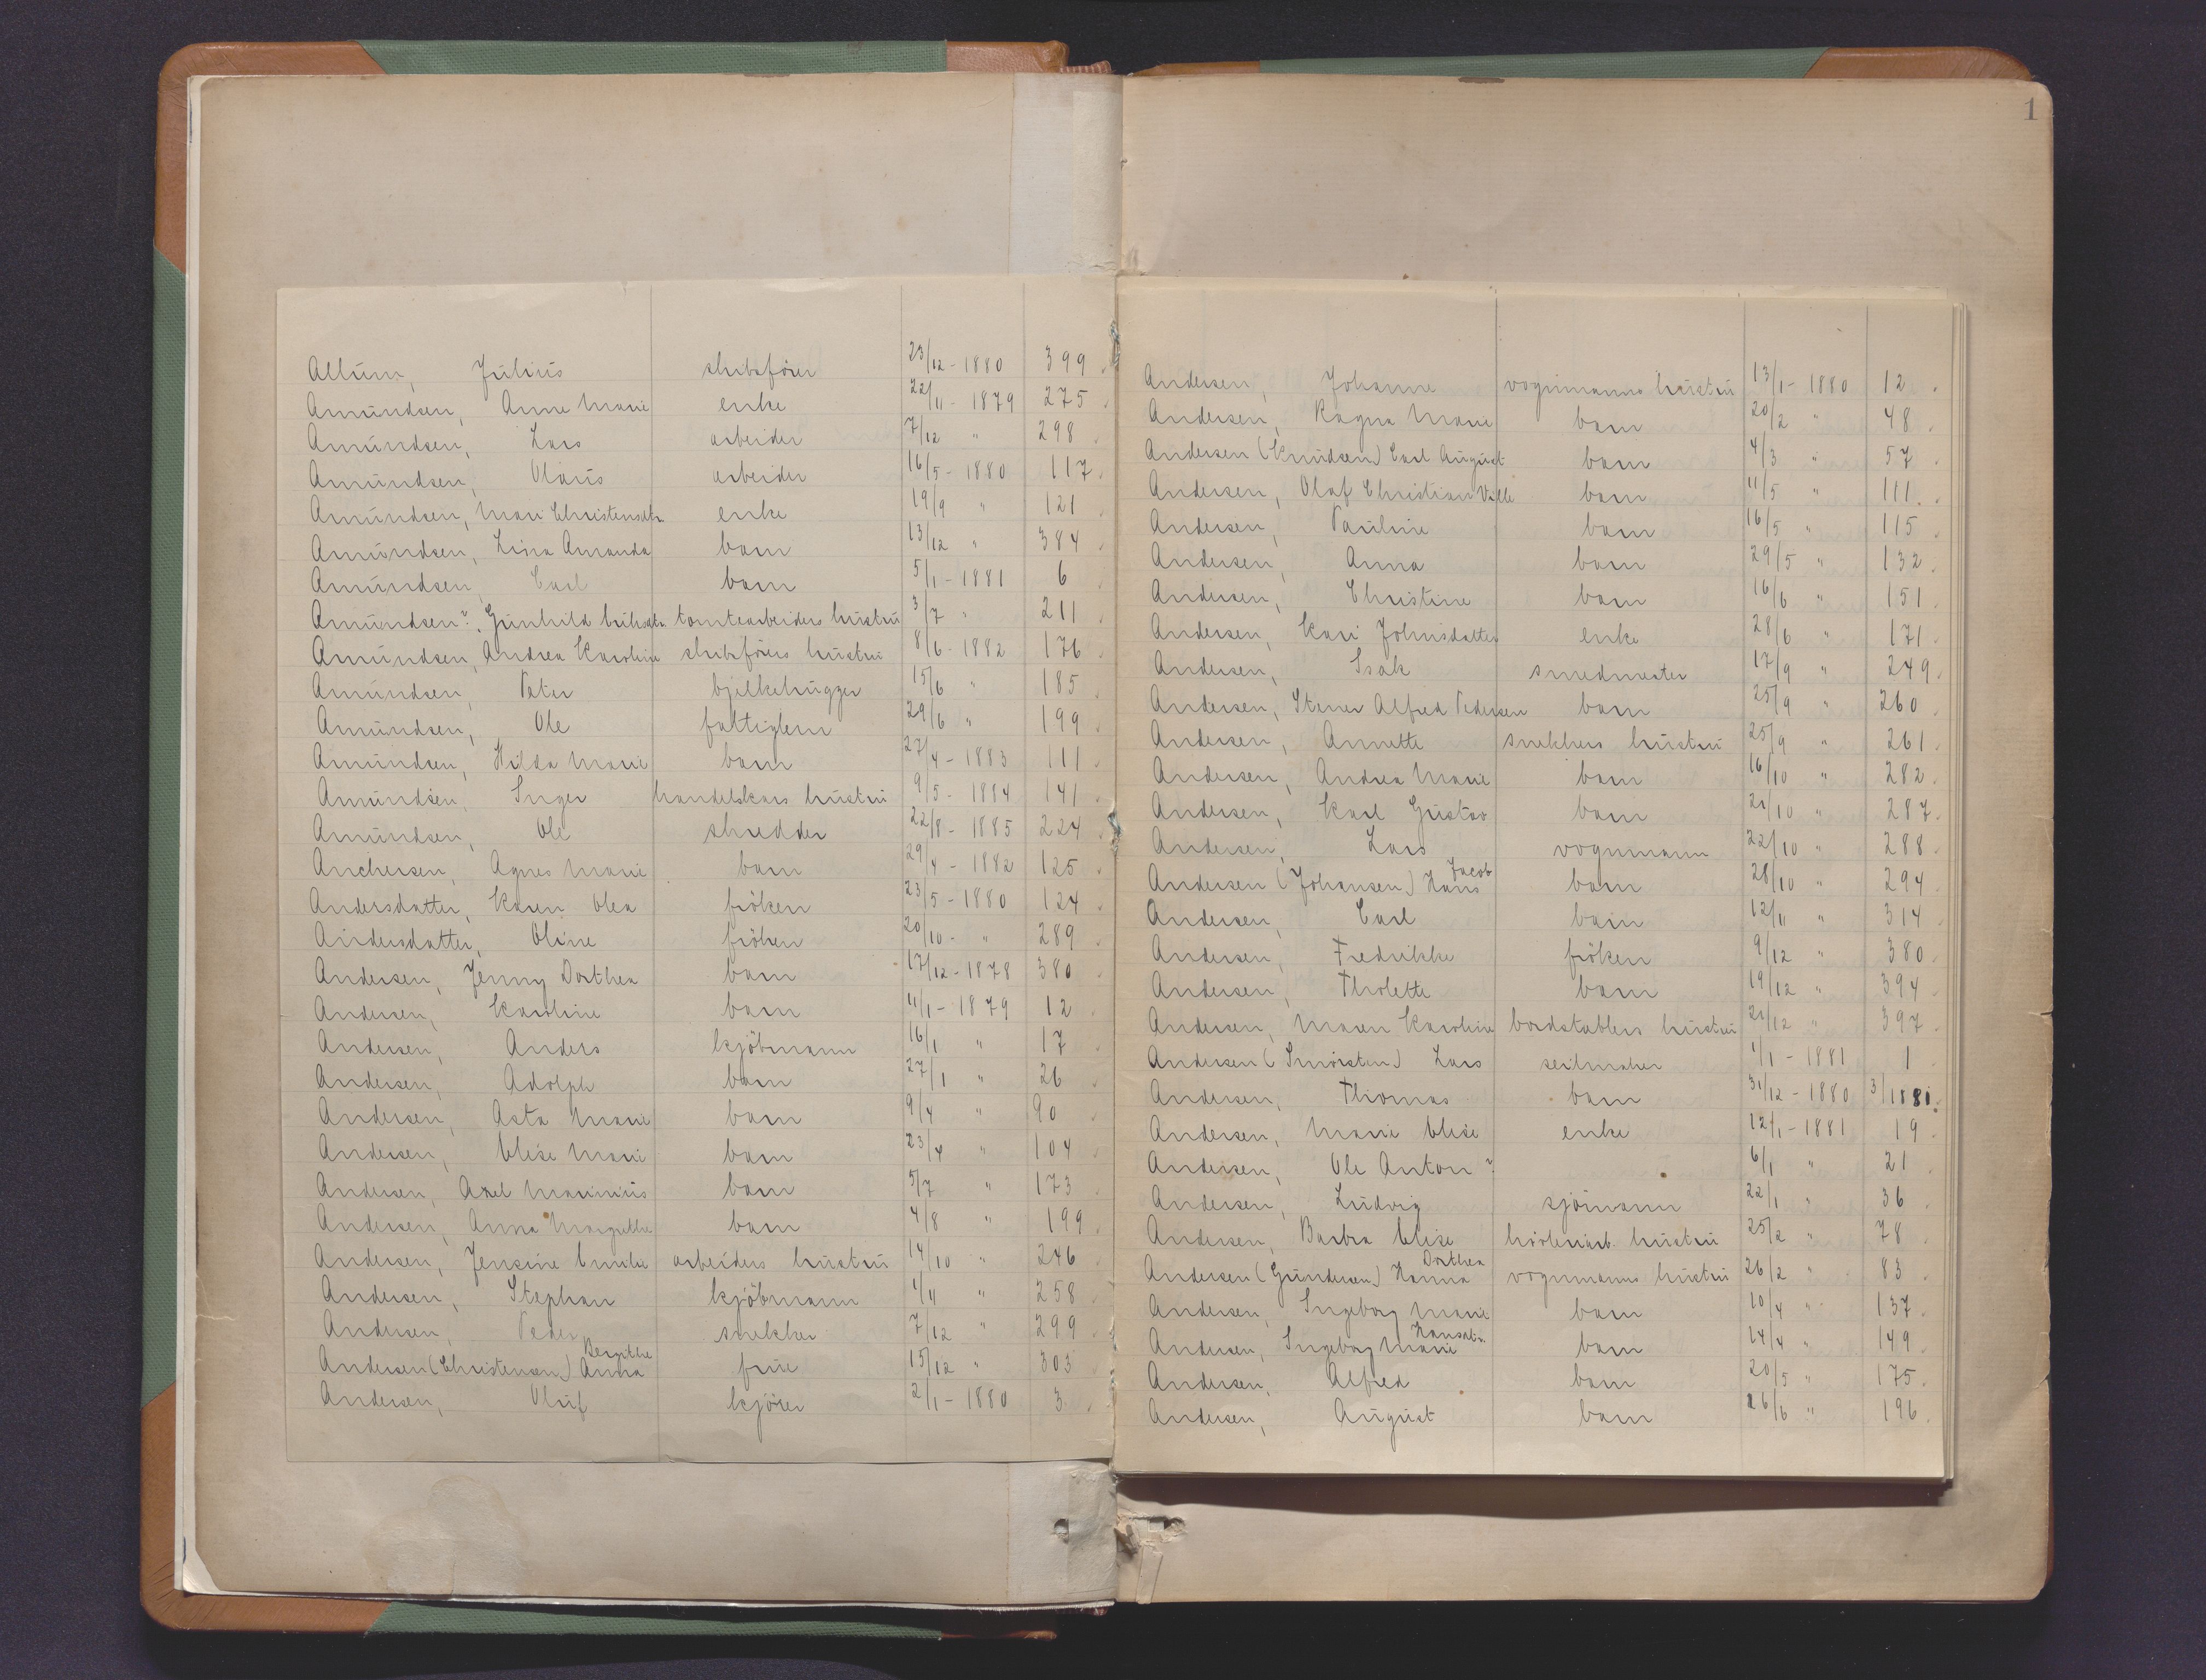 1
Allum, Julius skibsförer 23/12 - 1880 399.
Amundsen, Anne Marie enke 22/11 - 1879 275.
Amundsen, Lars arbeider 7/12 " 298.
Amundsen, Olaus arbeider 16/5 - 1880 117.
Amundsen, Mari Christensdtr. enke 19/9 " 121
Amundsen, Lina Amanda barn 13/12 " 384.
Amundsen, Carl barn 5/1 - 1881 6
Amundsen?, Gunhild tomtearbeiders hustru 3/7 " 211
Amundsen, Andrea Karoline skibsförers hustru 8/6 - 1882 176.
Amundsen, Peter bjelkehugger 15/6 " 185.
Amundsen, Ole fattiglem 29/6 " 199.
Amundsen, Hilda Marie barn 27/4 - 1883 111.
Amundsen, Inger handelskars hustru 9/5 - 1884 141
Amundsen, Ole skredder 22/8 - 1885 224.
Anchersen, Agnes Marie barn 29/4 - 1882 125.
Andersdatter, Karen Olea fröken 23/5 - 1880 124.
Andersdatter, Oline fröken 20/10 - " 289.
Andersen, Jenny Dorthea barn 17/12 - 1878 380.
Andersen, Karoline barn 11/1 - 1879 12.
Andersen, Anders kjöbmann 16/1 " 17
Andersen, Adolph barn 27/1 " 26
Andersen, Asta Marie barn 9/4 " 90
Andersen, Elise Marie barn 23/4 " 104.
Andersen, Axel Maximus barn 5/7 " 173
Andersen, Anna Margrethe barn 4/8 " 199.
Andersen, Jensine Emilie arbeiders hustru 14/10 " 246
Andersen, Stephan kjöbmann 1/11 " 258.
Andersen, Peder snekker 7/12 " 299.
Andersen (Christensen) Anna Bergithe frue 15/12 " 303
Andersen, Oluf kjörer 2/1 - 1880 3.
Andersen, Johanne vognmanns hustru 13/1 - 1880 12.
Andersen, Ragna Marie barn 20/2 " 48.
Andersen (Knudsen) Carl August barn 4/3 " 57.
Andersen, Olaf Christian Ville barn 11/5 " 111.
Andersen, Pauline barn 16/5 " 115.
Andersen, Anna barn 29/5 " 132.
Andersen, Christine barn 16/6 " 151.
Andersen, Kari Johnsdatter enke 28/6 " 171.
Andersen, Isak smedmester 17/9 " 249.
Andersen, Stener Alfred Pedersen barn 25/9 " 260.
Andersen, Annette snekkers hustru 25/9 " 261.
Andersen, Andrea Marie barn 16/10 " 282.
Andersen, Karl Gustav barn 21/10 " 287.
Andersen, Lars vognmann 22/10 " 288.
Andersen (Johansen) Hans Jacob barn 28/10 " 294.
Andersen, Carl barn 12/11 " 314.
Andersen, Fredrikke fröken 9/12 " 380.
Andersen, Tholette barn 19/12 " 394.
Andersen, Maren Karoline bordstablers hustru 21/12 " 397.
Andersen (Smörsten) Lars seilmaker 1/1 - 1881 1.
Andersen, Thomas barn 31/12 - 1880 3/1881.
Andersen, Marie Elise enke 12/1 - 1881 19.
Andersen, Ole Anton ? 6/1 " 21
Andersen, Ludvig sjömann 22/1 " 36.
Andersen, Barbra Elise hustru 25/2 " 78.
Andersen (Gundersen) Hanna Dorthea vognmanns hustru 26/2 " 83.
Andersen, Ingeborg Marie barn 10/4 " 137.
Andersen, Ingeborg Marie Hansdtr. barn 14/4 " 149.
Andersen, Alfred barn 20/5 " 175.
Andersen, August barn 26/6 " 196.